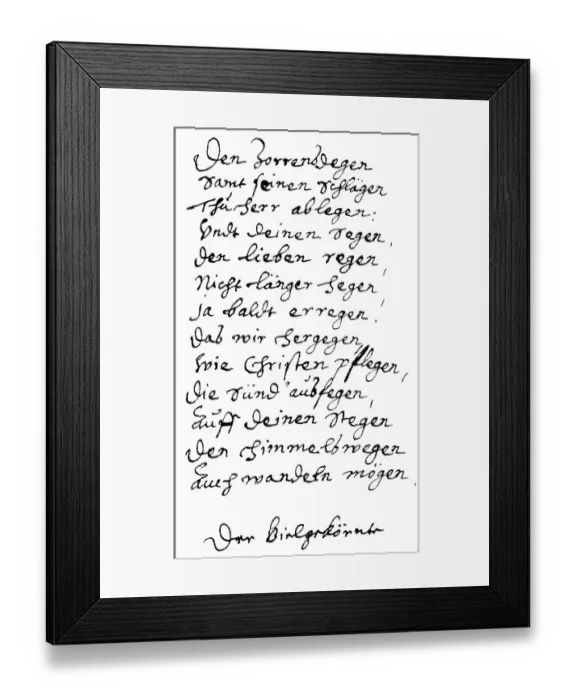 Den Zorrensdegen
samt seinen schlägen
Thu herr ablegen:
Undt deinen segen,
den lieben regen,
Nicht länger hegen
ja baldt erregen!
das wir hergegen,
wie Christen pflegen,
die sünd außfegen,
auff deinen stegen
den himmelswegen
auch wandeln mögen.
Der Vielgekörnte